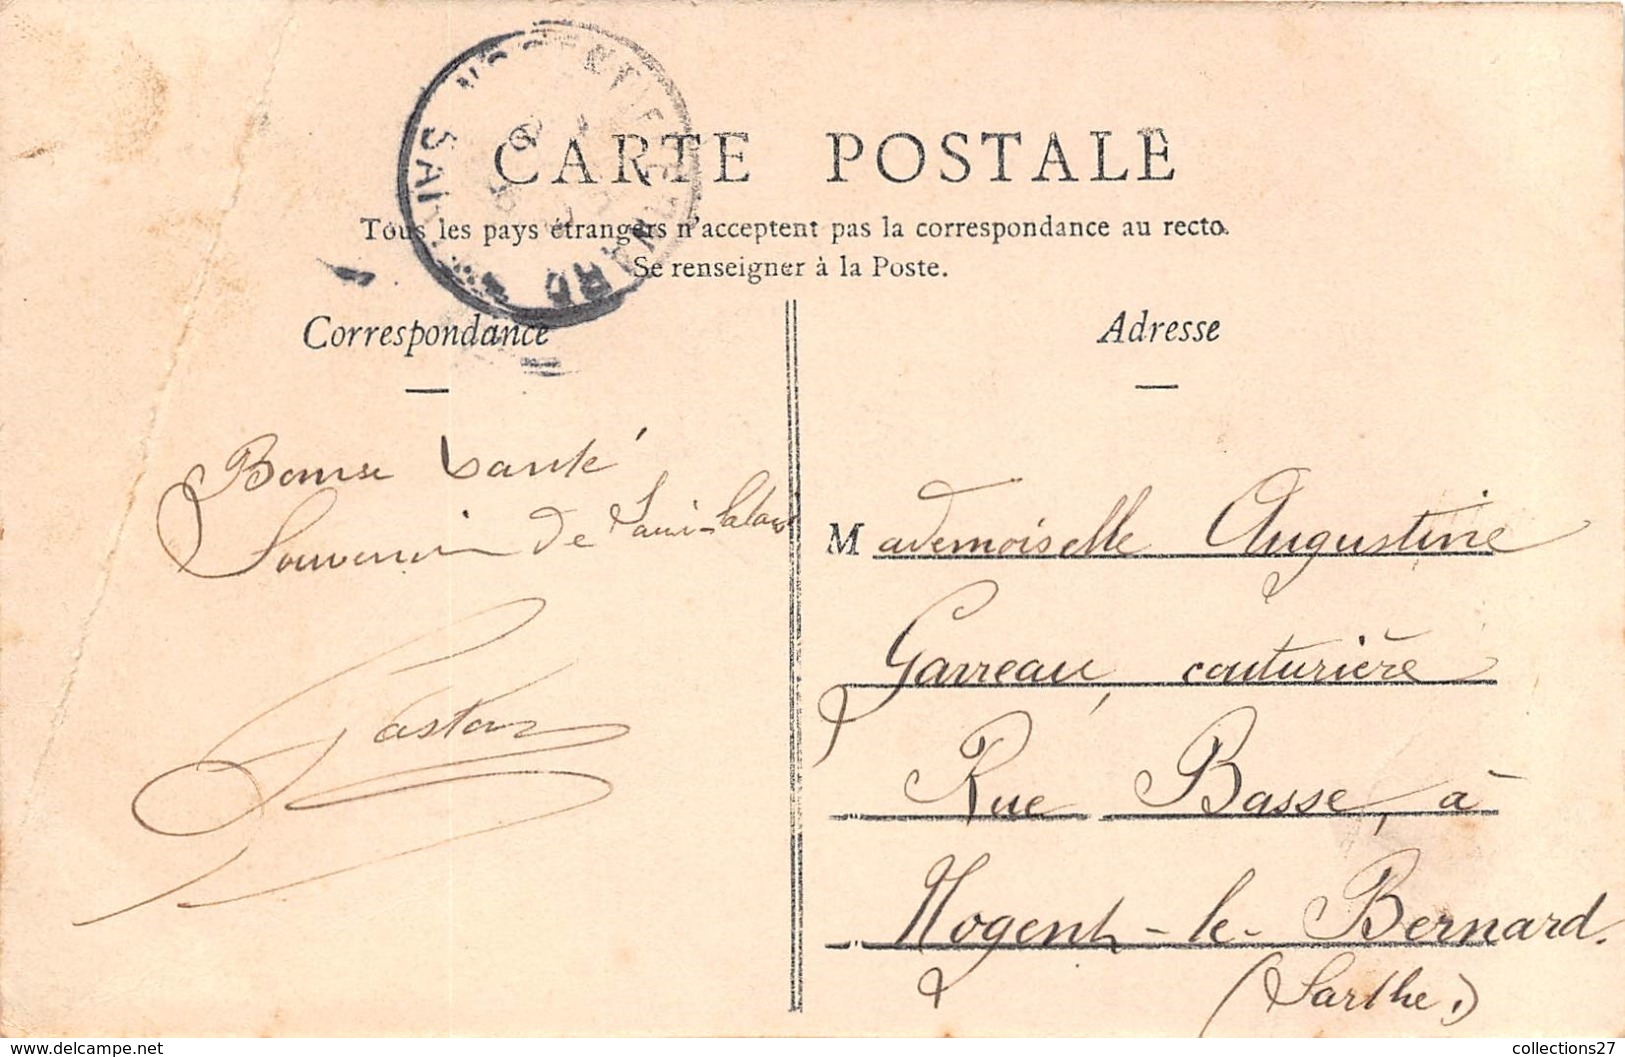 NOGENT-LE-BERNARD
CARTE POSTALE
Tous les pays étrangers n'acceptent pas la correspondance au recto.
Se renseigner à la Poste.
Correspondance
Bonne Santé
Souvenir de
Gaston
Adresse
Mademoiselle Augustine
Garreau, couturière
Rue Basse, à
Nogent-le-Bernard.
(Sarthe.)
collections27